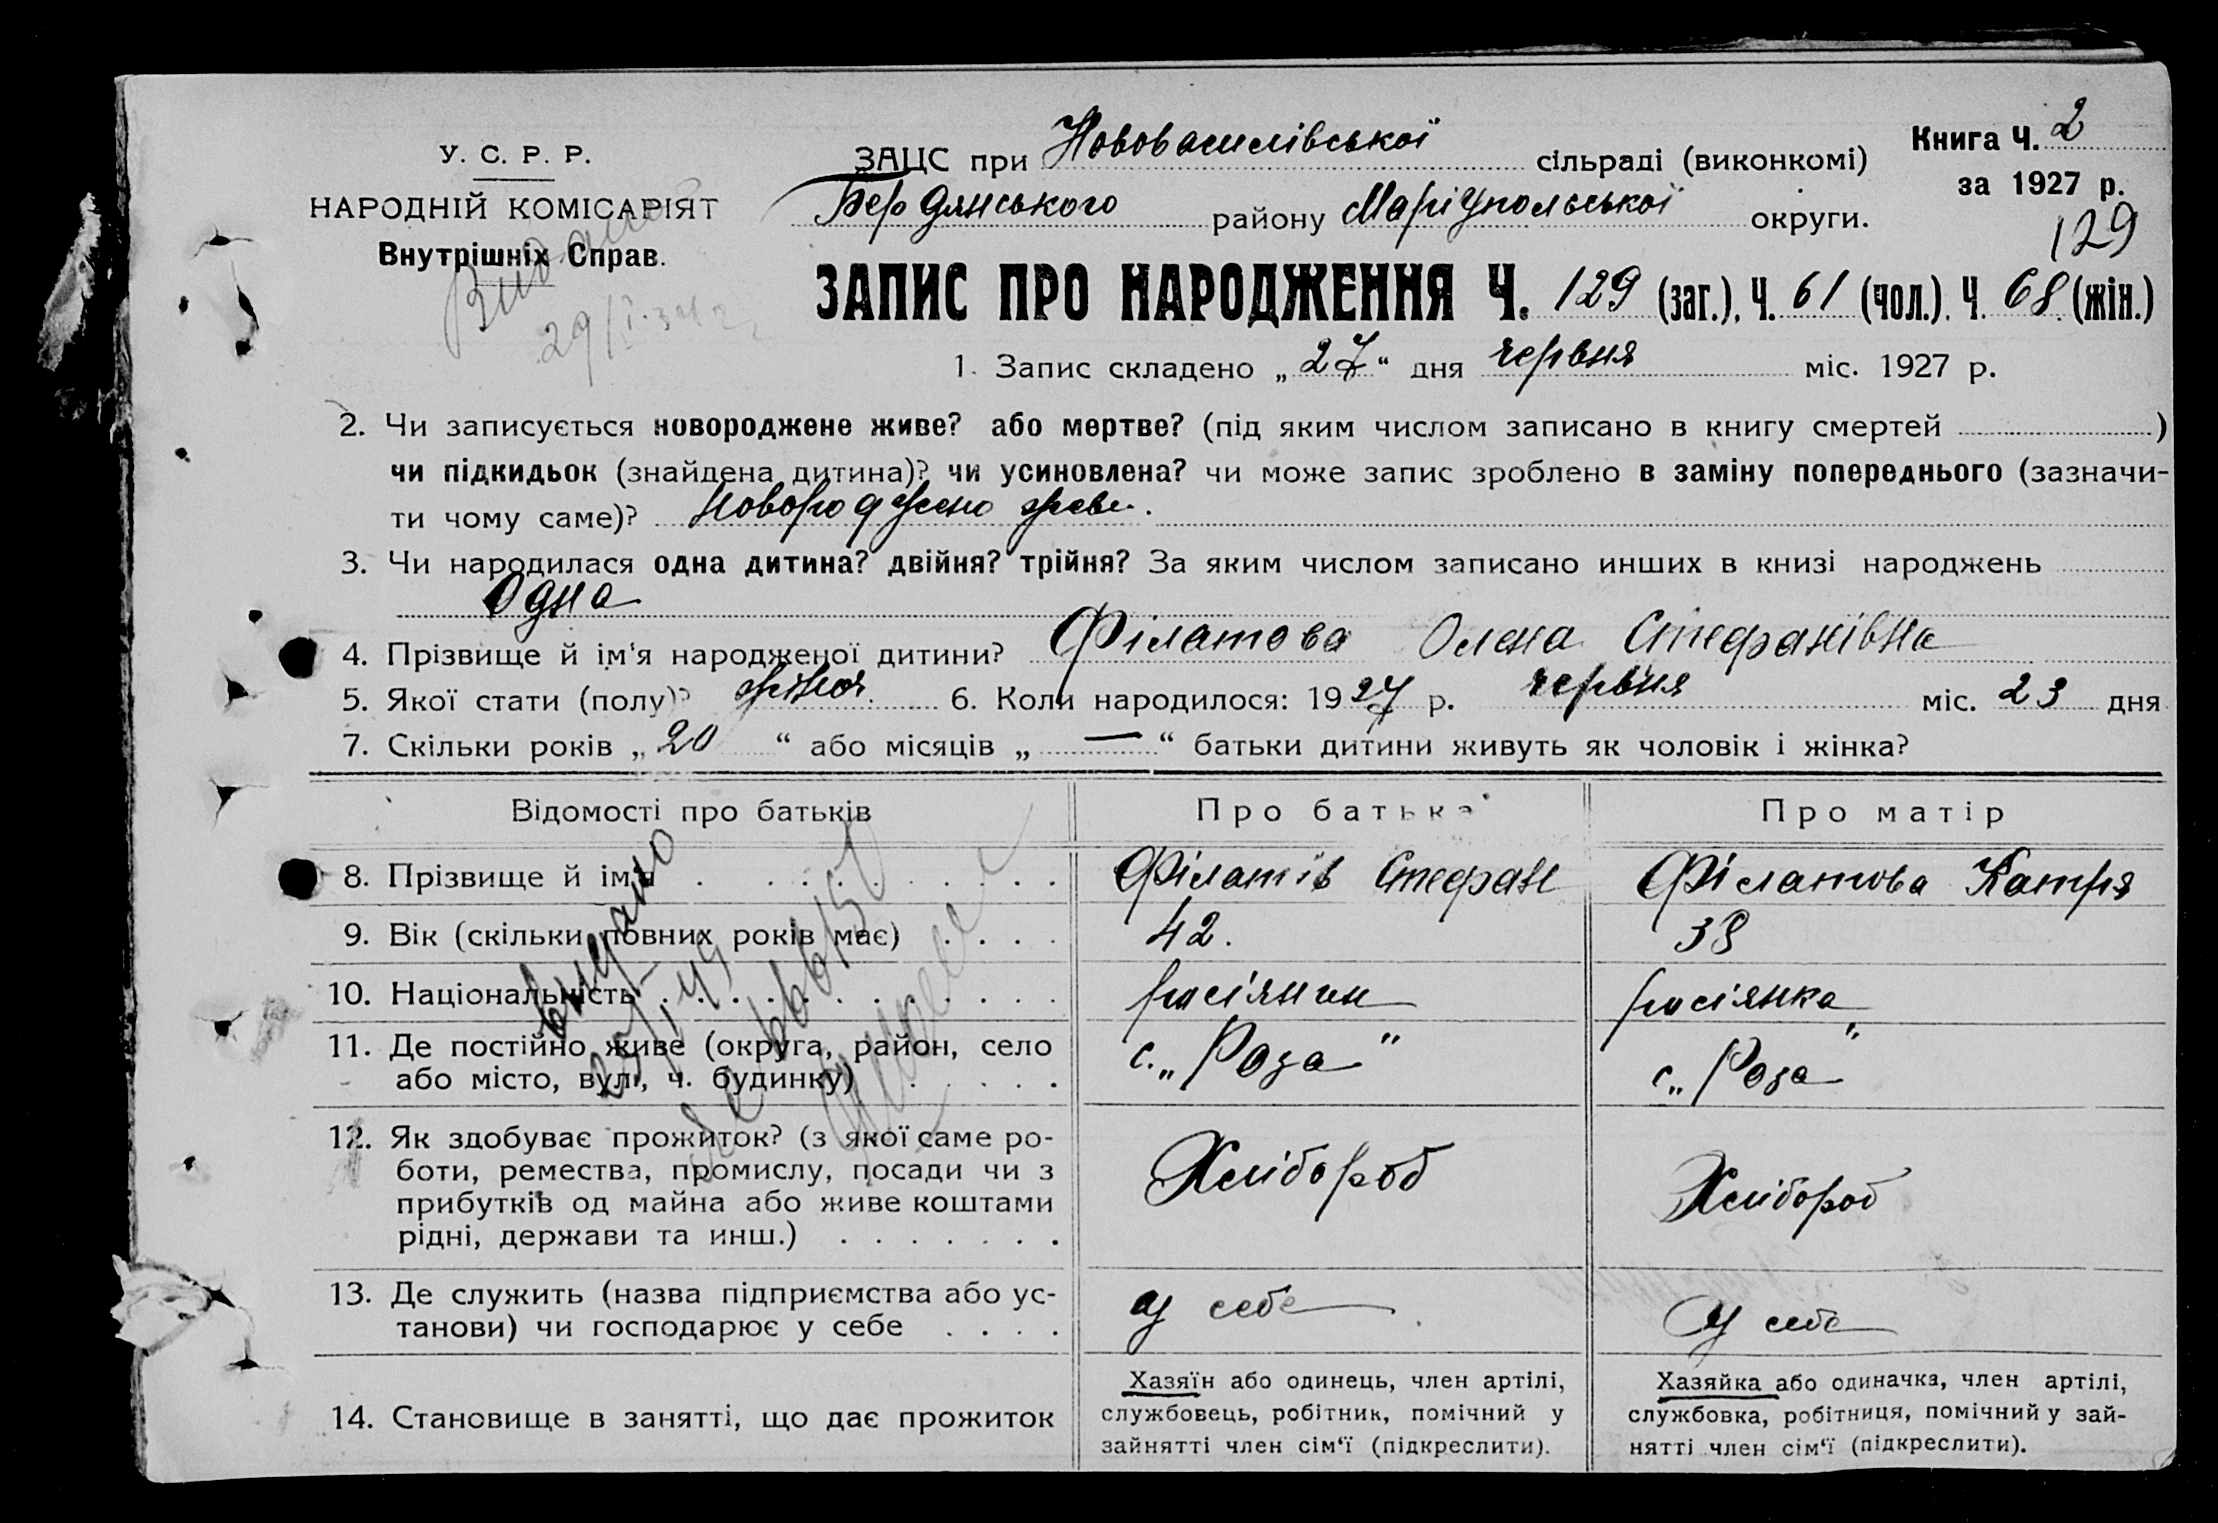 У. С. Р. Р.
НАРОДНІЙ КОМІСАРІЯТ
Внутрішніх Справ.
ЗАЦС при Нововасилівської сільраді (виконкомі)
Бердянського району Маріупольської округи.
Книга Ч. 2
за 1927 р.
129
ЗАПИС ПРО НАРОДЖЕННЯ Ч. 129 (заг.), Ч. 61 (чол.). Ч. 68 (жін.)
1. Запис складено „27“ дня червня міс. 1927 р.
2. Чи записується новороджене живе? або мертве? (під яким числом записано в книгу смертей )
чи підкидьок (знайдена дитина)? чи усиновлена? чи може запис зроблено в заміну попереднього (зазначи-
ти чому саме)? Новороджено живе.
3. Чи народилася одна дитина? двійня? трійня? За яким числом записано инших в книзі народжень
Одна
4. Прізвище й ім'я народженої дитини? Філатова Олена Стефанівна
5. Якої стати (полу)? жіноч. 6. Коли народилося: 1927 р. червня міс. 23 дня
7. Скільки років „20“ або місяців „—“ батьки дитини живуть як чоловік і жінка?
Відомості про батьків Про батька Про матір
8. Прізвище й ім'я Філатів Стефан Філатова Катря
9. Вік (скільки повних років має) 42. 38
10. Національність росіянин росіянка
11. Де постійно живе (округа, район, село
або місто, вул., ч. будинку) с. „Роза“ с. „Роза“
12. Як здобуває прожиток? (з якої саме ро-
боти, ремества, промислу, посади чи з
прибутків од майна або живе коштами
рідні, держави та инш.) Хлібороб Хлібороб
13. Де служить (назва підприємства або ус-
танови) чи господарює у себе у себе у себе
14. Становище в занятті, що дає прожиток
Хазяїн або одинець, член артілі,
службовець, робітник, помічний у
зайнятті член сім‘ї (підкреслити).
Хазяйка або одиначка, член артілі,
службовка, робітниця, помічний у зай-
нятті член сім‘ї (підкреслити).
Видано